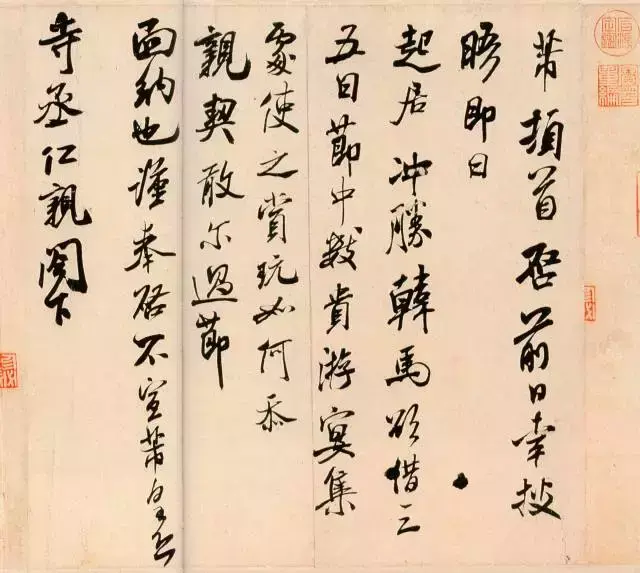 芾頓首啓前日幸披
晤即日
起居沖勝韓馬欲借三
五日節中數貴游宴集
處使之賞玩如何忝
親契敢尔過節
面納也謹奉啓不宣芾皇恐
寺丞仁親閤下